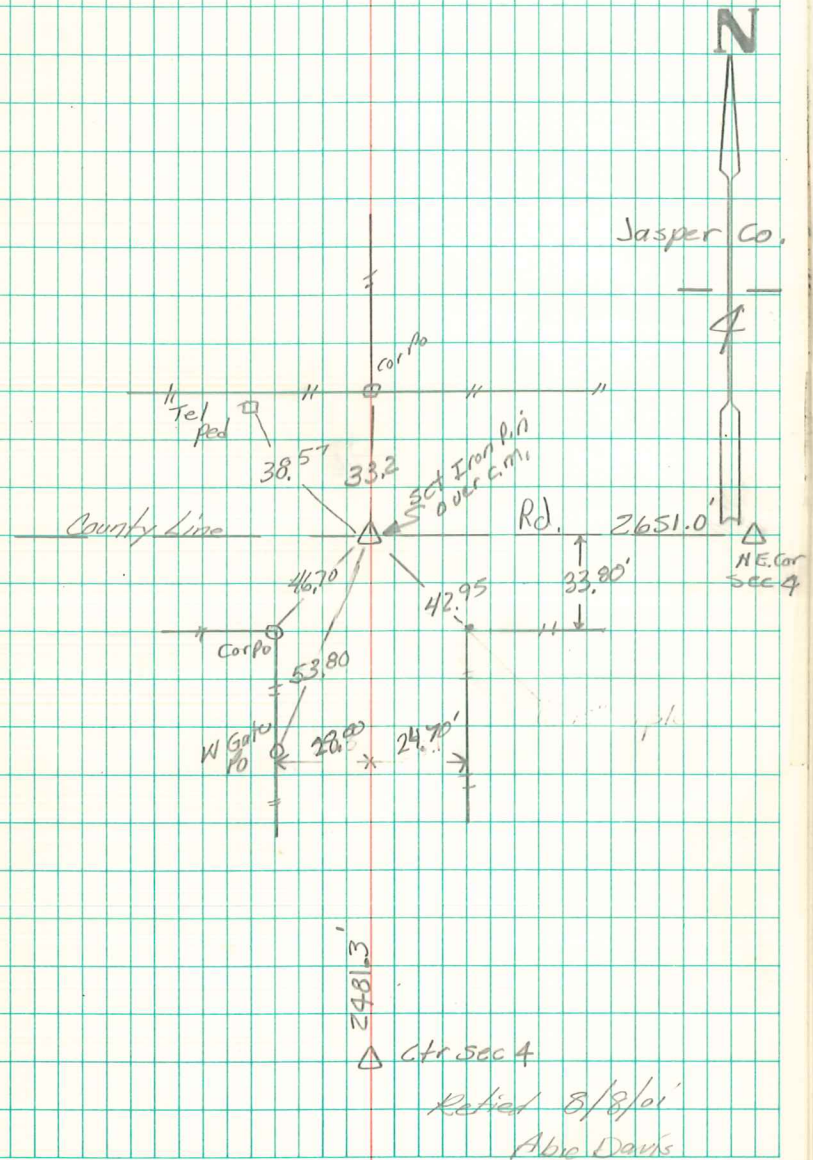 N
Jasper Co.
4
Cor Po
Tel
Ped
38.57
33.2
Set Iron Pin
over c.m.
County Line
Rd.
2651.0'
N.E. Cor
Sec 4
33.80'
46.70
42.95
Cor Po
53.80
W Gate
Po
28.00
24.70'
2481.3'
Ctr Sec 4
Retied 8/8/01
Abie Davis